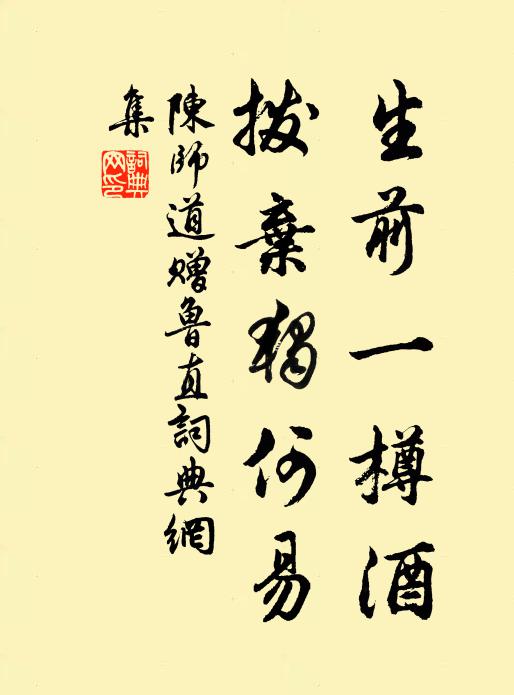 生前一樽酒
拨棄獨何易
陳師道贈魯直詞典網
集
詞典網印